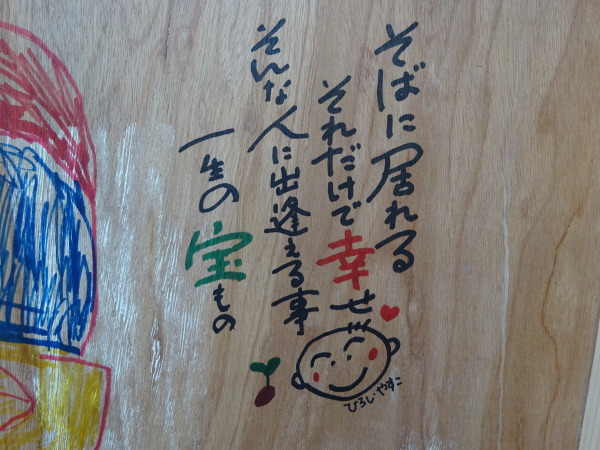 そばに居れる
それだけで幸せ
そんな人に出逢える事
一生の宝もの
ひろしやすこ